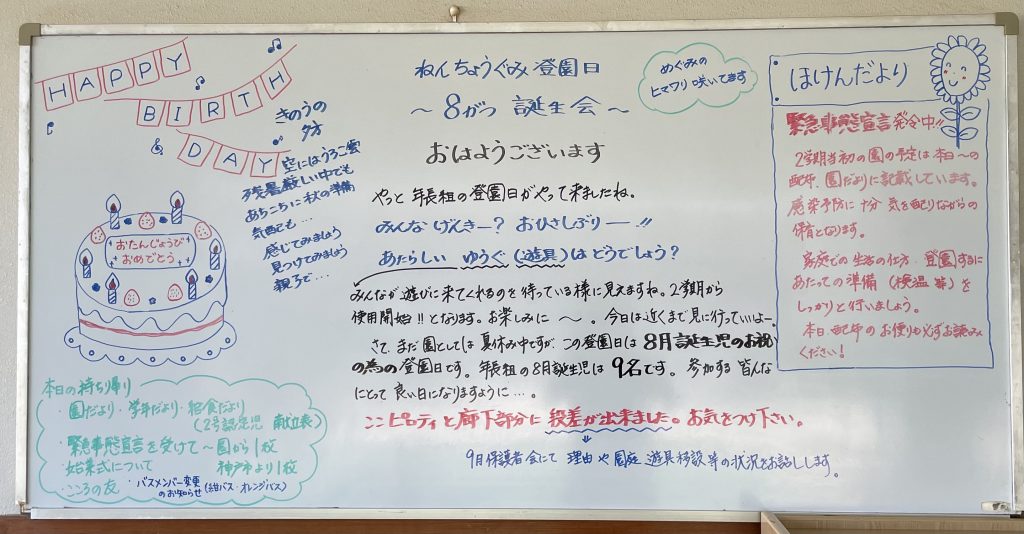 HAPPY
BIRTH
DAY
きのうの
夕方
空にはうろこ雲
残暑厳しい中でも
あちこちに秋の準備
気配も…
感じてみましょう
見つけてみましょう
親子で…
おたんじょうび
おめでとう
本日の持ち帰り
・園だより・学年だより・給食だより
(2号認定児 献立表)
・緊急事態宣言を受けて〜園から1枚
・始業式について 神戸市より1枚
・こころの友
・バスメンバー変更
のお知らせ(紺バス・オレンジバス)
ねんちょうぐみ登園日
〜8がつ 誕生会〜
おはようございます
やっと年長組の登園日がやって来ましたね。
みんなげんきー? おひさしぶりー!!
あたらしい ゆうぐ(遊具)はどうでしょう?
みんなが遊びに来てくれるのを待っている様に見えますね。2学期から
使用開始!!となります。お楽しみに〜。今日は近くまで見に行っていいよー。
さて、まだ園としては夏休み中ですが、この登園日は8月誕生児のお祝
の為の登園日です。年長組の8月誕生児は9名です。参加する皆んな
にとって良い日になりますように…。
ここピロティと廊下部分に段差が出来ました。お気をつけ下さい。
9月保護者会にて 理由や園庭 遊具移設等の状況をお話しします。
めぐみの
ヒマワリ咲いてます
ほけんだより
緊急事態宣言発令中!!
2学期当初の園の予定は本日〜の
配布、園だよりに記載しています。
感染予防に十分気を配りながらの
保育となります。
家庭での生活の仕方・登園するに
あたっての準備(検温等)を
しっかりと行いましょう。
本日配布のお便りも必ずお読み
ください!